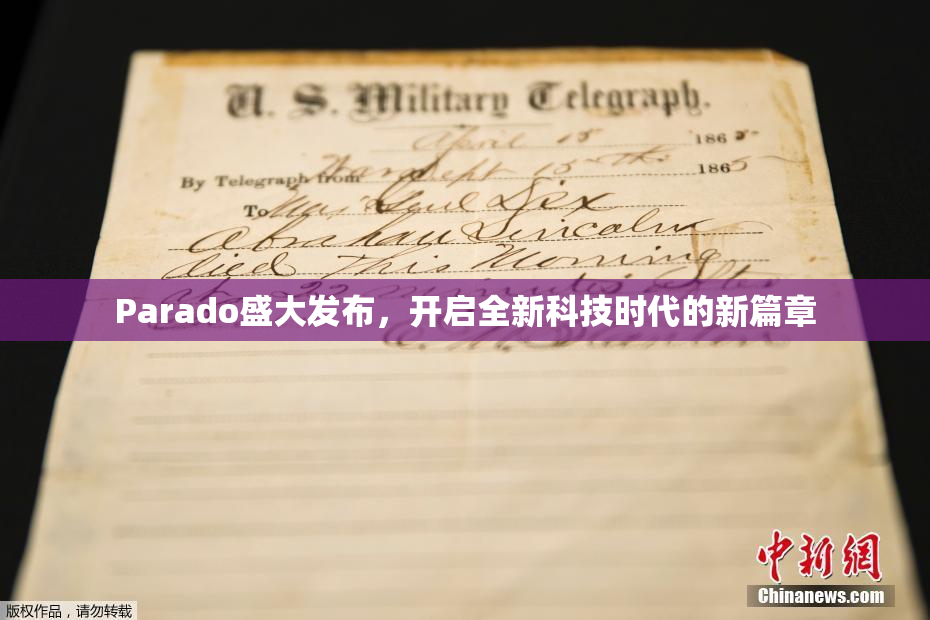 U. S. Military Telegraph.
April 15 1865
By Telegraph from War Dept 15th 1865
To Maj Genl Dix
Abraham Lincoln
died This Morning
at 22 minutes after
Parado盛大发布，开启全新科技时代的新篇章
中新网
Chinanews.com
版权作品，请勿转载